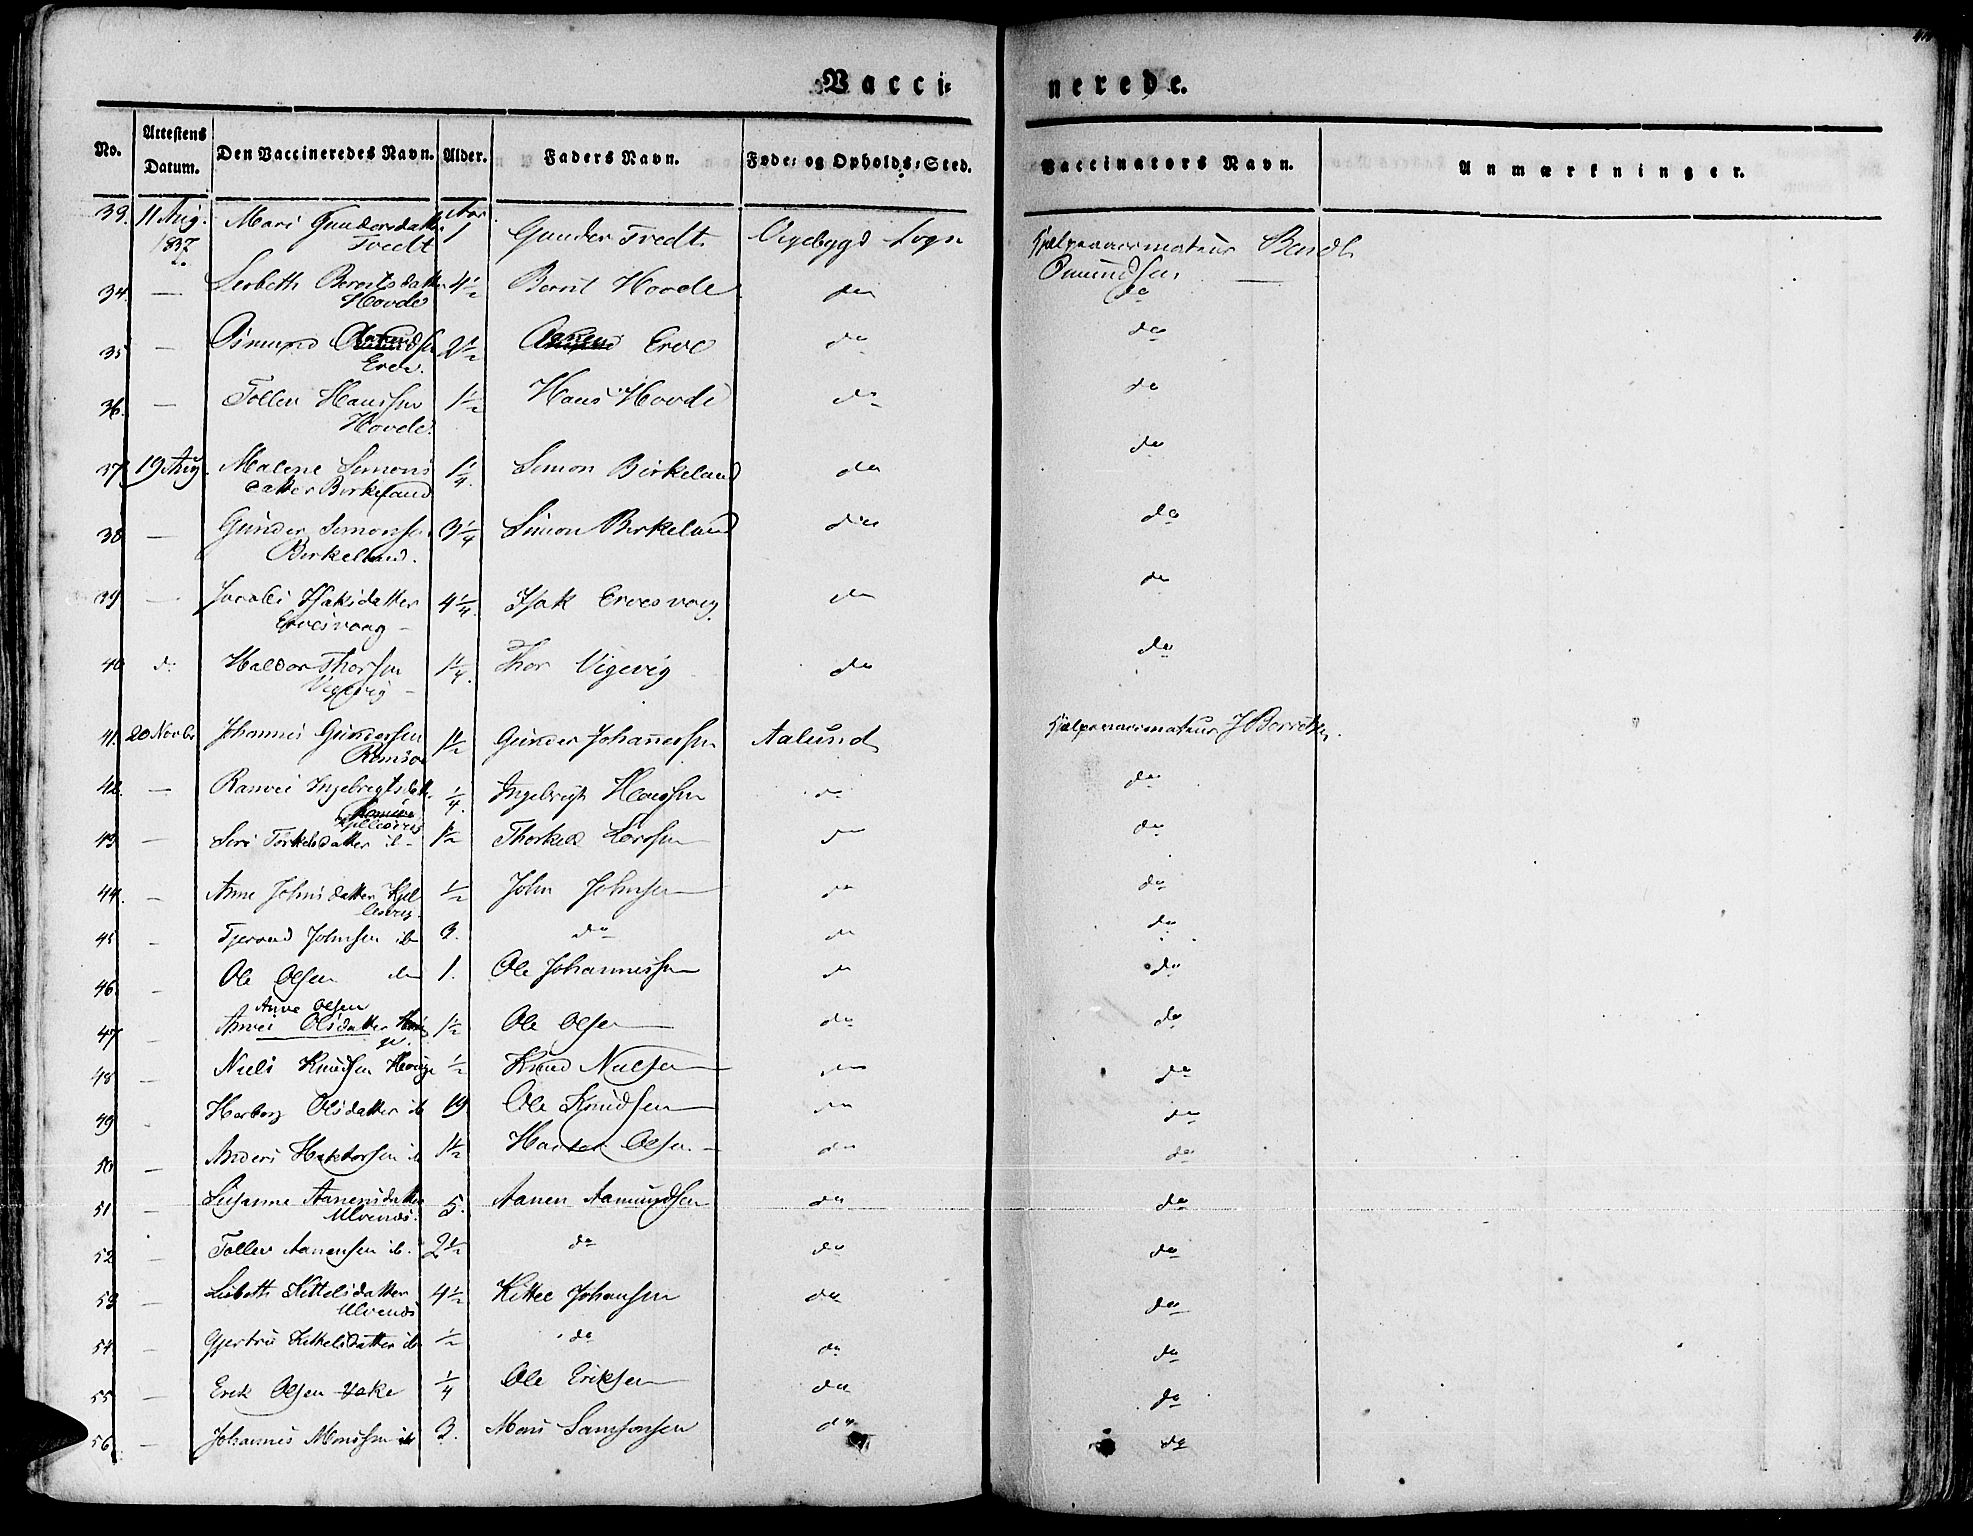 Vacci= nerede.
No. Attestens Datum. Den Vaccineredes Navn. Alder. Faders Navn. Føde= og Opholds=Sted. Vaccinators Navn. Anmærkninger.
33. 11 Aug. 1837. Mari Gundersdatter Tvedt 1 Gunder Tvedt Vigebygd Sogn Hjælpevaccinateur Bendt Omundsen
34. — Lisbeth Berntsdatter Hovde 4½ Bernt Hovde do do
35 — Osmund Erve. 2½ Erve do do
36. — Tollev Hansen Hovde. 1½ Hans Hovde do do
37 19 Aug. Malene Simons datter Birkeland 1¼. Simon Birkeland do do
38 — Gunder Simonsen Birkeland. 3¼ Simon Birkeland do do
39 — Isaksdatter Ervesvaag — 4¼. Isak Ervesvaag do do
40 do Haldor Thorsen Vigevig — 1¼. Thor Vigevig do do
41. 20 Novbr Johannes Gundersen Ramsøe 1½ Gunder Johannessen Aalund Hjælpevaccinateur J Berntsen.
42. — Ranvei Ingebregtsdatter ¼. Ingebregt Hansen do do
43 — Siri Torkelsdatter ib— 1½ Thorkeld Larsen do do
44. — Anne Johnsdatter Kjellesvig. ½ John Johnsen do do
45 — Tjerand Johnsen ib 3. do do do
46. — Ole Olsen do 1. Ole Johannessen do do
Anne Olsen
47 — Anvei Olsdatter 1½ Ole Olsen do do
48 — Niels Knudsen Herøe ½ Knud Nielsen do do
49 Herborg Olsdatter ib 19 Ole Knudsen do do
50 — Anders Hektorsen ib 1½ Olsen — do do
51 — Susanne Aanensdatter Ulvenæs. 5. Aanen Aamundsen do do
52 — Tollev Aanensen ib. 2½ do do do
53 — Lisbeth Kittelsdatter Ulvenæs 4½ Kittel Johansen do do
54 — Gjertru Kittelsdatter ib ½ do do do
55 — Erik Olsen ¼ Ole Eriksen do do
56 — Johannes Monsen ib 3. Mons Samsonsen do do